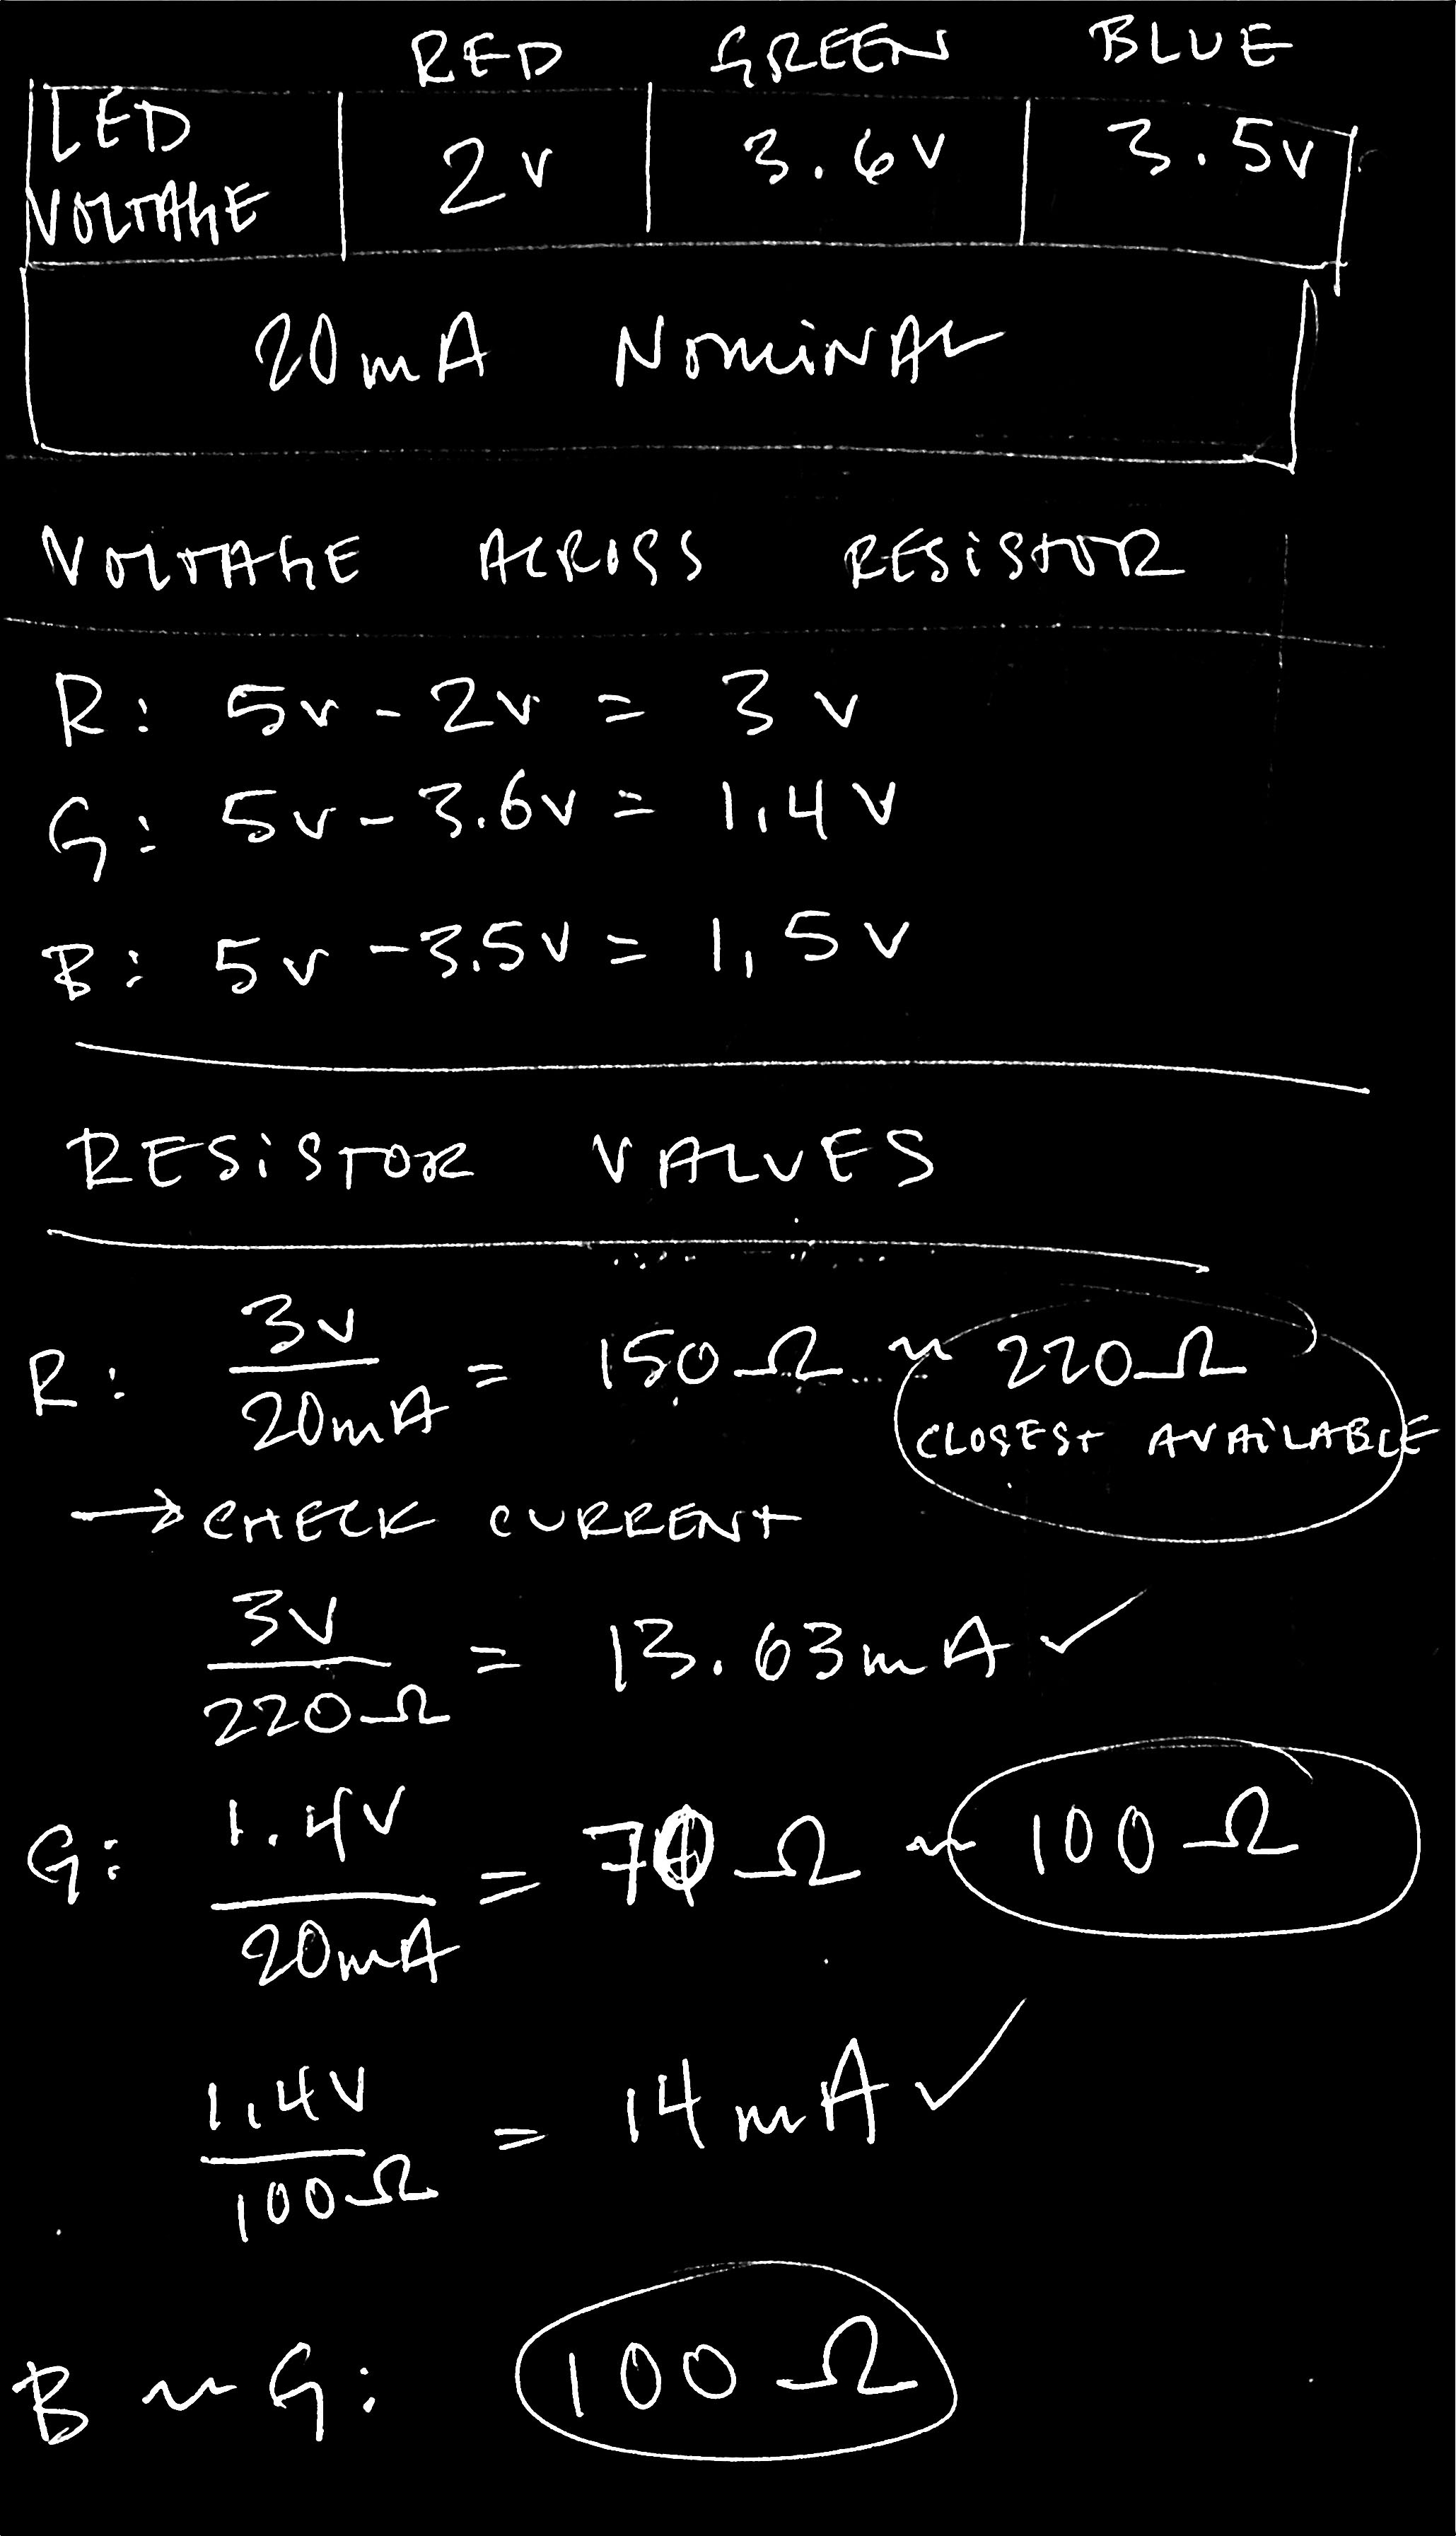 RED GREEN BLUE
LED VOLTAGE 2V 3.6V 3.5V
20mA NOMINAL
VOLTAGE ACROSS RESISTOR
R: 5V - 2V = 3V
G: 5V - 3.6V = 1.4V
B: 5V - 3.5V = 1.5V
RESISTOR VALUES
R: 3V / 20mA = 150Ω ~ 220Ω
CLOSEST AVAILABLE
→ CHECK CURRENT
3V / 220Ω = 13.63mA ✓
G: 1.4V / 20mA = 70Ω ~ 100Ω
1.4V / 100Ω = 14mA ✓
B ~ G: 100Ω